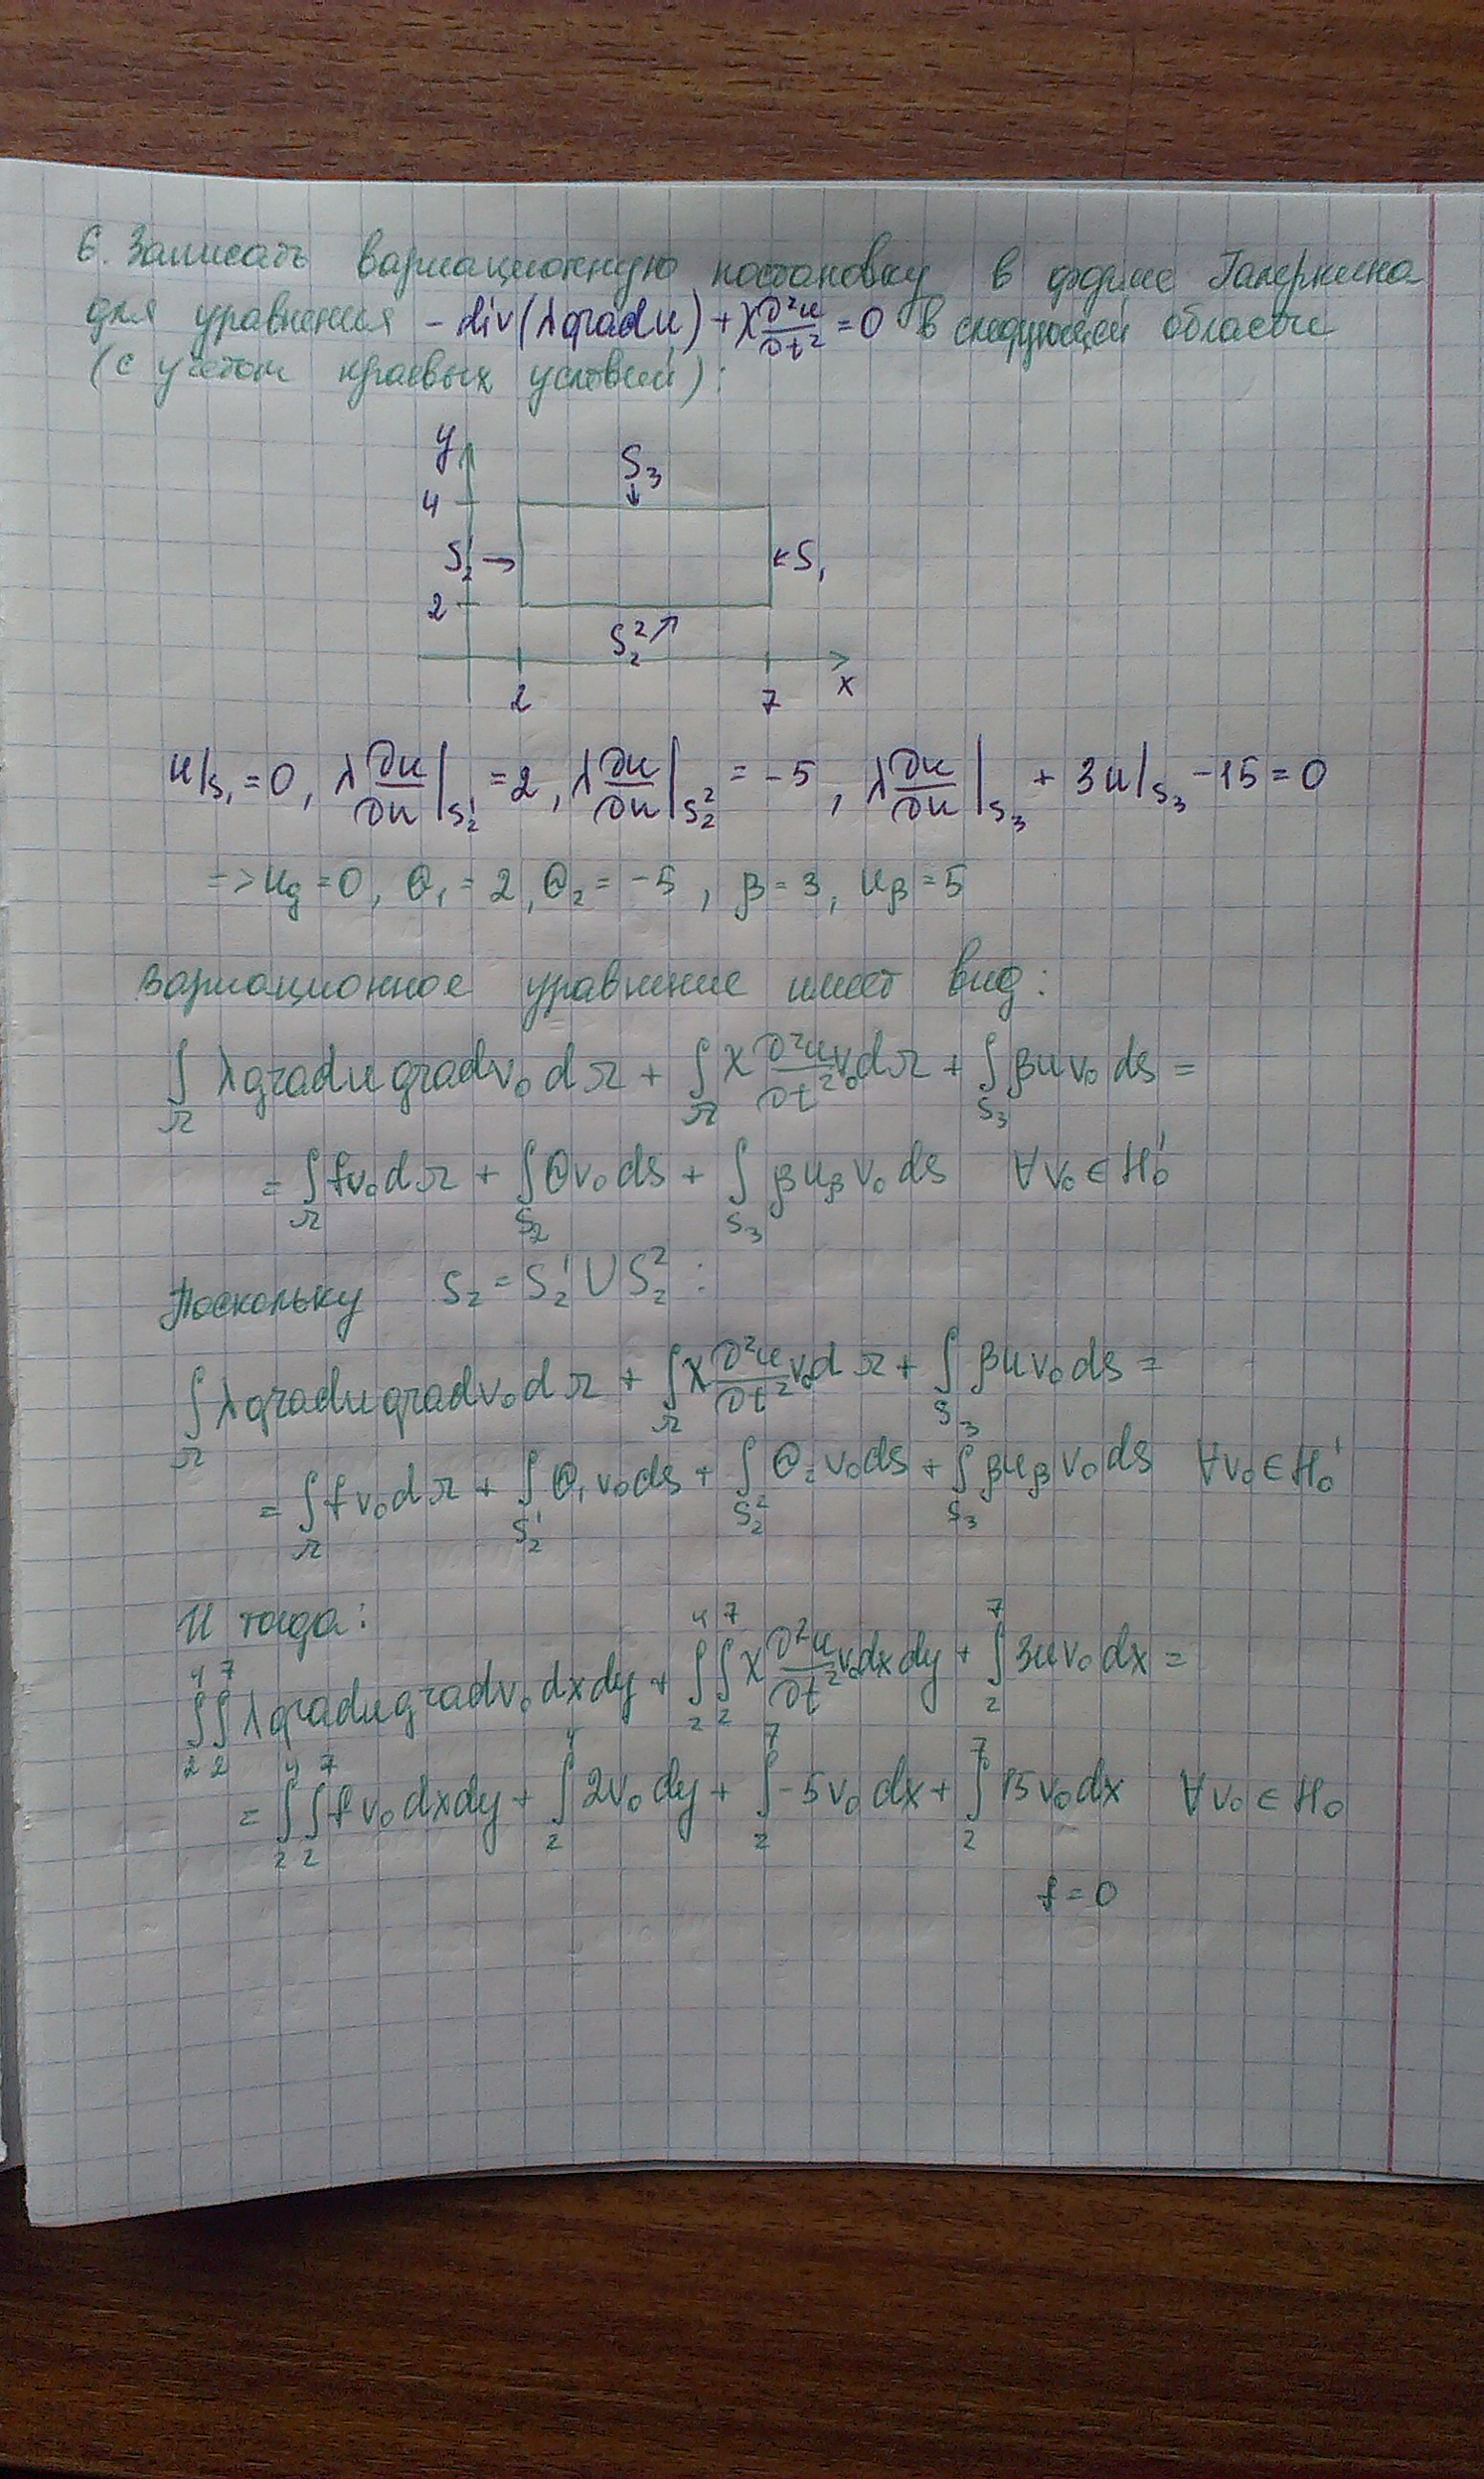 6. Записать вариационную постановку в форме Галеркина
для уравнения -div(λgradu)+χ∂²u/∂t²=0 в следующей области
(с учётом краевых условий):
y
S₃
4
S₂¹ →
← S₁
2
S₂² ↗
2
7
x
u|s₁=0, λ∂u/∂n|s₂¹=2, λ∂u/∂n|s₂²=-5, λ∂u/∂n|s₃ + 3u|s₃ -15=0
=> ug=0, θ₁=2, θ₂=-5, β=3, uβ=5
Вариационное уравнение имеет вид:
∫Ω λgradu gradv₀ dΩ + ∫Ω χ∂²u/∂t² v₀ dΩ + ∫S₃ βuv₀ ds =
= ∫Ω fv₀ dΩ + ∫S₂ θv₀ ds + ∫S₃ βuβ v₀ ds ∀v₀∈H₀¹
Поскольку S₂=S₂¹∪S₂²:
∫Ω λgradu gradv₀ dΩ + ∫Ω χ∂²u/∂t² v₀ dΩ + ∫S₃ βuv₀ ds =
= ∫Ω fv₀ dΩ + ∫S₂¹ θ₁v₀ ds + ∫S₂² θ₂v₀ ds + ∫S₃ βuβ v₀ ds ∀v₀∈H₀¹
И тогда:
∫₂⁴∫₂⁷ λgradu gradv₀ dxdy + ∫₂⁴∫₂⁷ χ∂²u/∂t² v₀ dxdy + ∫₂⁷ 3uv₀ dx =
= ∫₂⁴∫₂⁷ fv₀ dxdy + ∫₂⁴ 2v₀ dy + ∫₂⁷ -5v₀ dx + ∫₂⁷ 15v₀ dx ∀v₀∈H₀
f=0